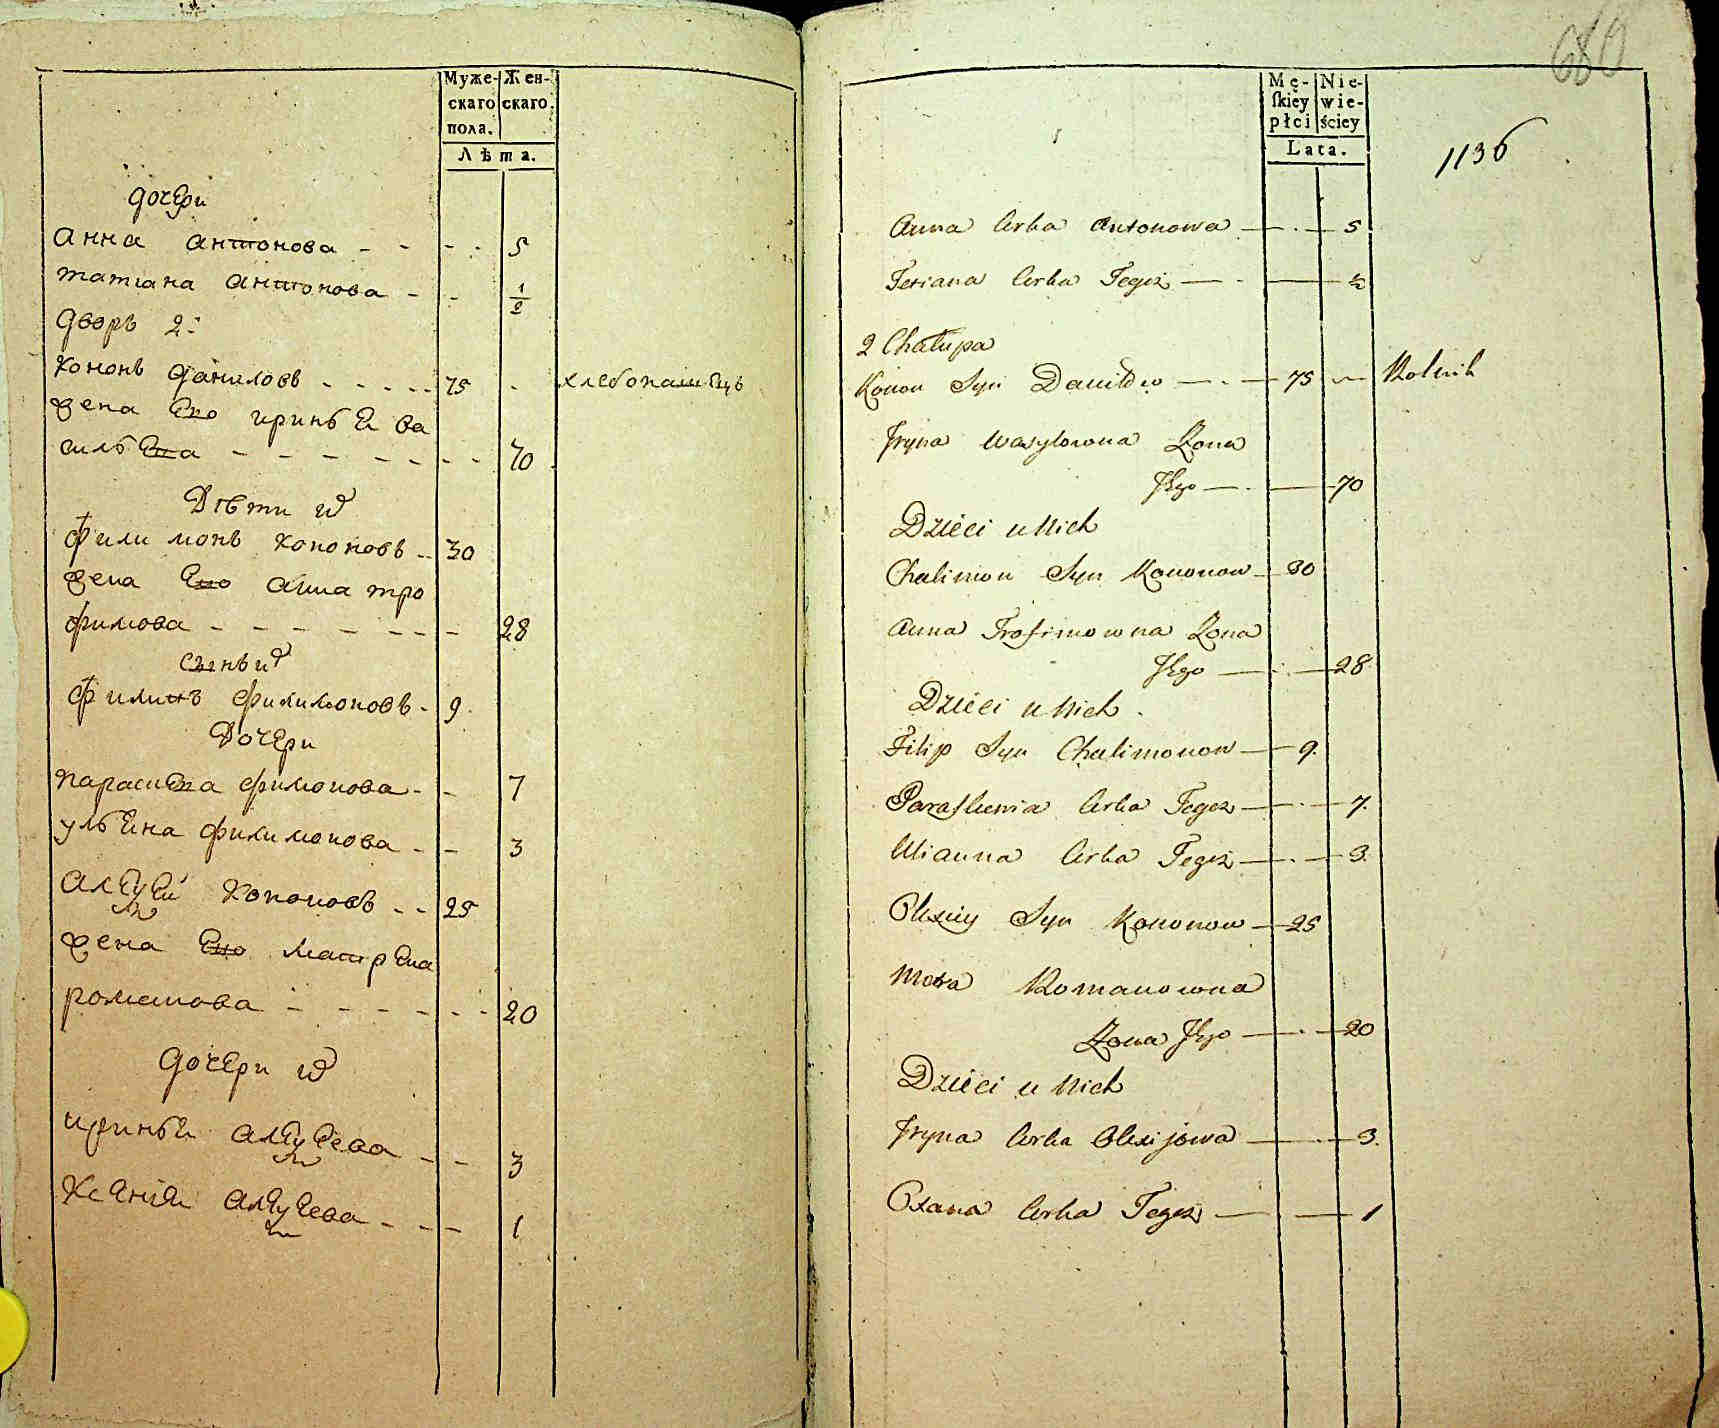 Муже-
скаго
пола.
Жен-
скаго.
Лѣта.
дочери
анна антонова - - - - 5
татiана антонова - - 1/2
дворъ 2:
кононъ даниловъ - - - - - 75 - хлебопашецъ
жена Ево ириньЕи ва
сильЕва - - - - - - - - 70
Дѣти их
филимонъ кононовъ - - 30
жена Ево анна тро
фимова - - - - - - - - 28
сынъ их
филипъ филимоновъ - 9
Дочери
парасиЕва фимонова - - 7
ульЕна филимонова - - 3
алЕуЕй кононовъ - - 25
жена Ево матрЕна
романова - - - - - - - 20
дочери их
ириньЕи алЕуЕева - - 3
КсЕнiЕи алЕуЕева - - - 1
680
Mę-
skiey
płci
Nie-
wie-
ściey
Lata.
1136
Anna Corka Antonowa — . — 5
Tetiana Corka Tegoż — . — ½
2 Chałupa
Konon Syn Daniłow — . — 75 — Rolnik
Jryna Wasylowna Żona
Jego — . — 70
Dzieci u Nich
Chalimon Syn Kononow — 30
Anna Trofimowna Żona
Jego — . — 28
Dzieci u Nich
Filip Syn Chalimonow — 9.
Paraskewia Corka Tegoż — . — 7.
Ulianna Corka Tegoż — . — 3.
Olexiy Syn Kononow — 25
Motra Romanowna
Żona Jego — . — 20
Dzieci u Nich
Jryna Corka Olexijowa — . — 3.
Oxana Corka Tegoż — — 1